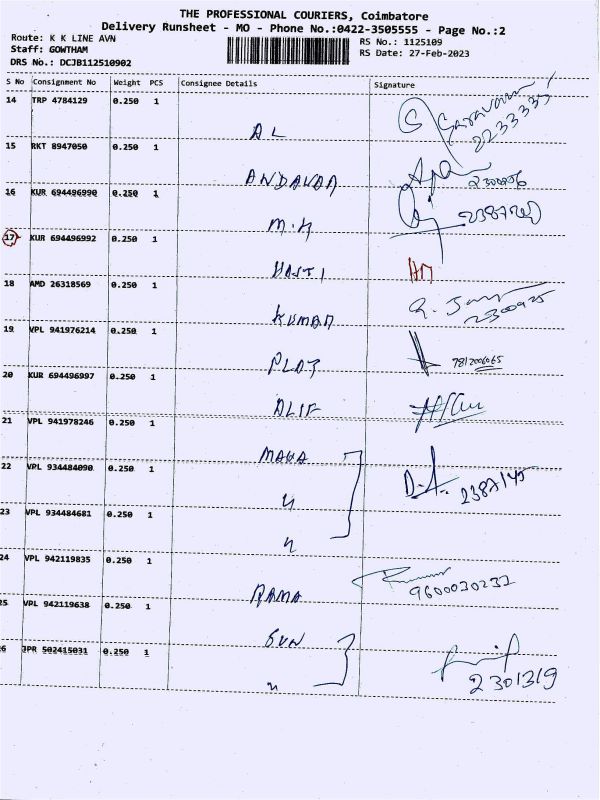 THE PROFESSIONAL COURIERS, Coimbatore
Delivery Runsheet - MO - Phone No.:0422-3505555 - Page No.:2
Route: K K LINE AVN
RS No.: 1125109
Staff: GOWTHAM
RS Date: 27-Feb-2023
DRS No.: DCJB112510902
S No Consignment No Weight PCS Consignee Details Signature
14 TRP 4784129 0.250 1
AL
2233335
15 RKT 8947050 0.250 1
ANDAVAR
16 KUR 694496990 0.250 1
M.H
17 KUR 694496992 0.250 1
HASTI HM
18 AMD 26318569 0.250 1
KUMAR
2300925
19 VPL 941976214 0.250 1
20 KUR 694496997 0.250 1
ALIF
21 VPL 941978246 0.250 1
MAHA
22 VPL 934484090 0.250 1
" 2387145
23 VPL 934484681 0.250 1
"
24 VPL 942119835 0.250 1
RAMA 9600030231
25 VPL 942119638 0.250 1
SUN
26 JPR 502415031 0.250 1
" 2301319